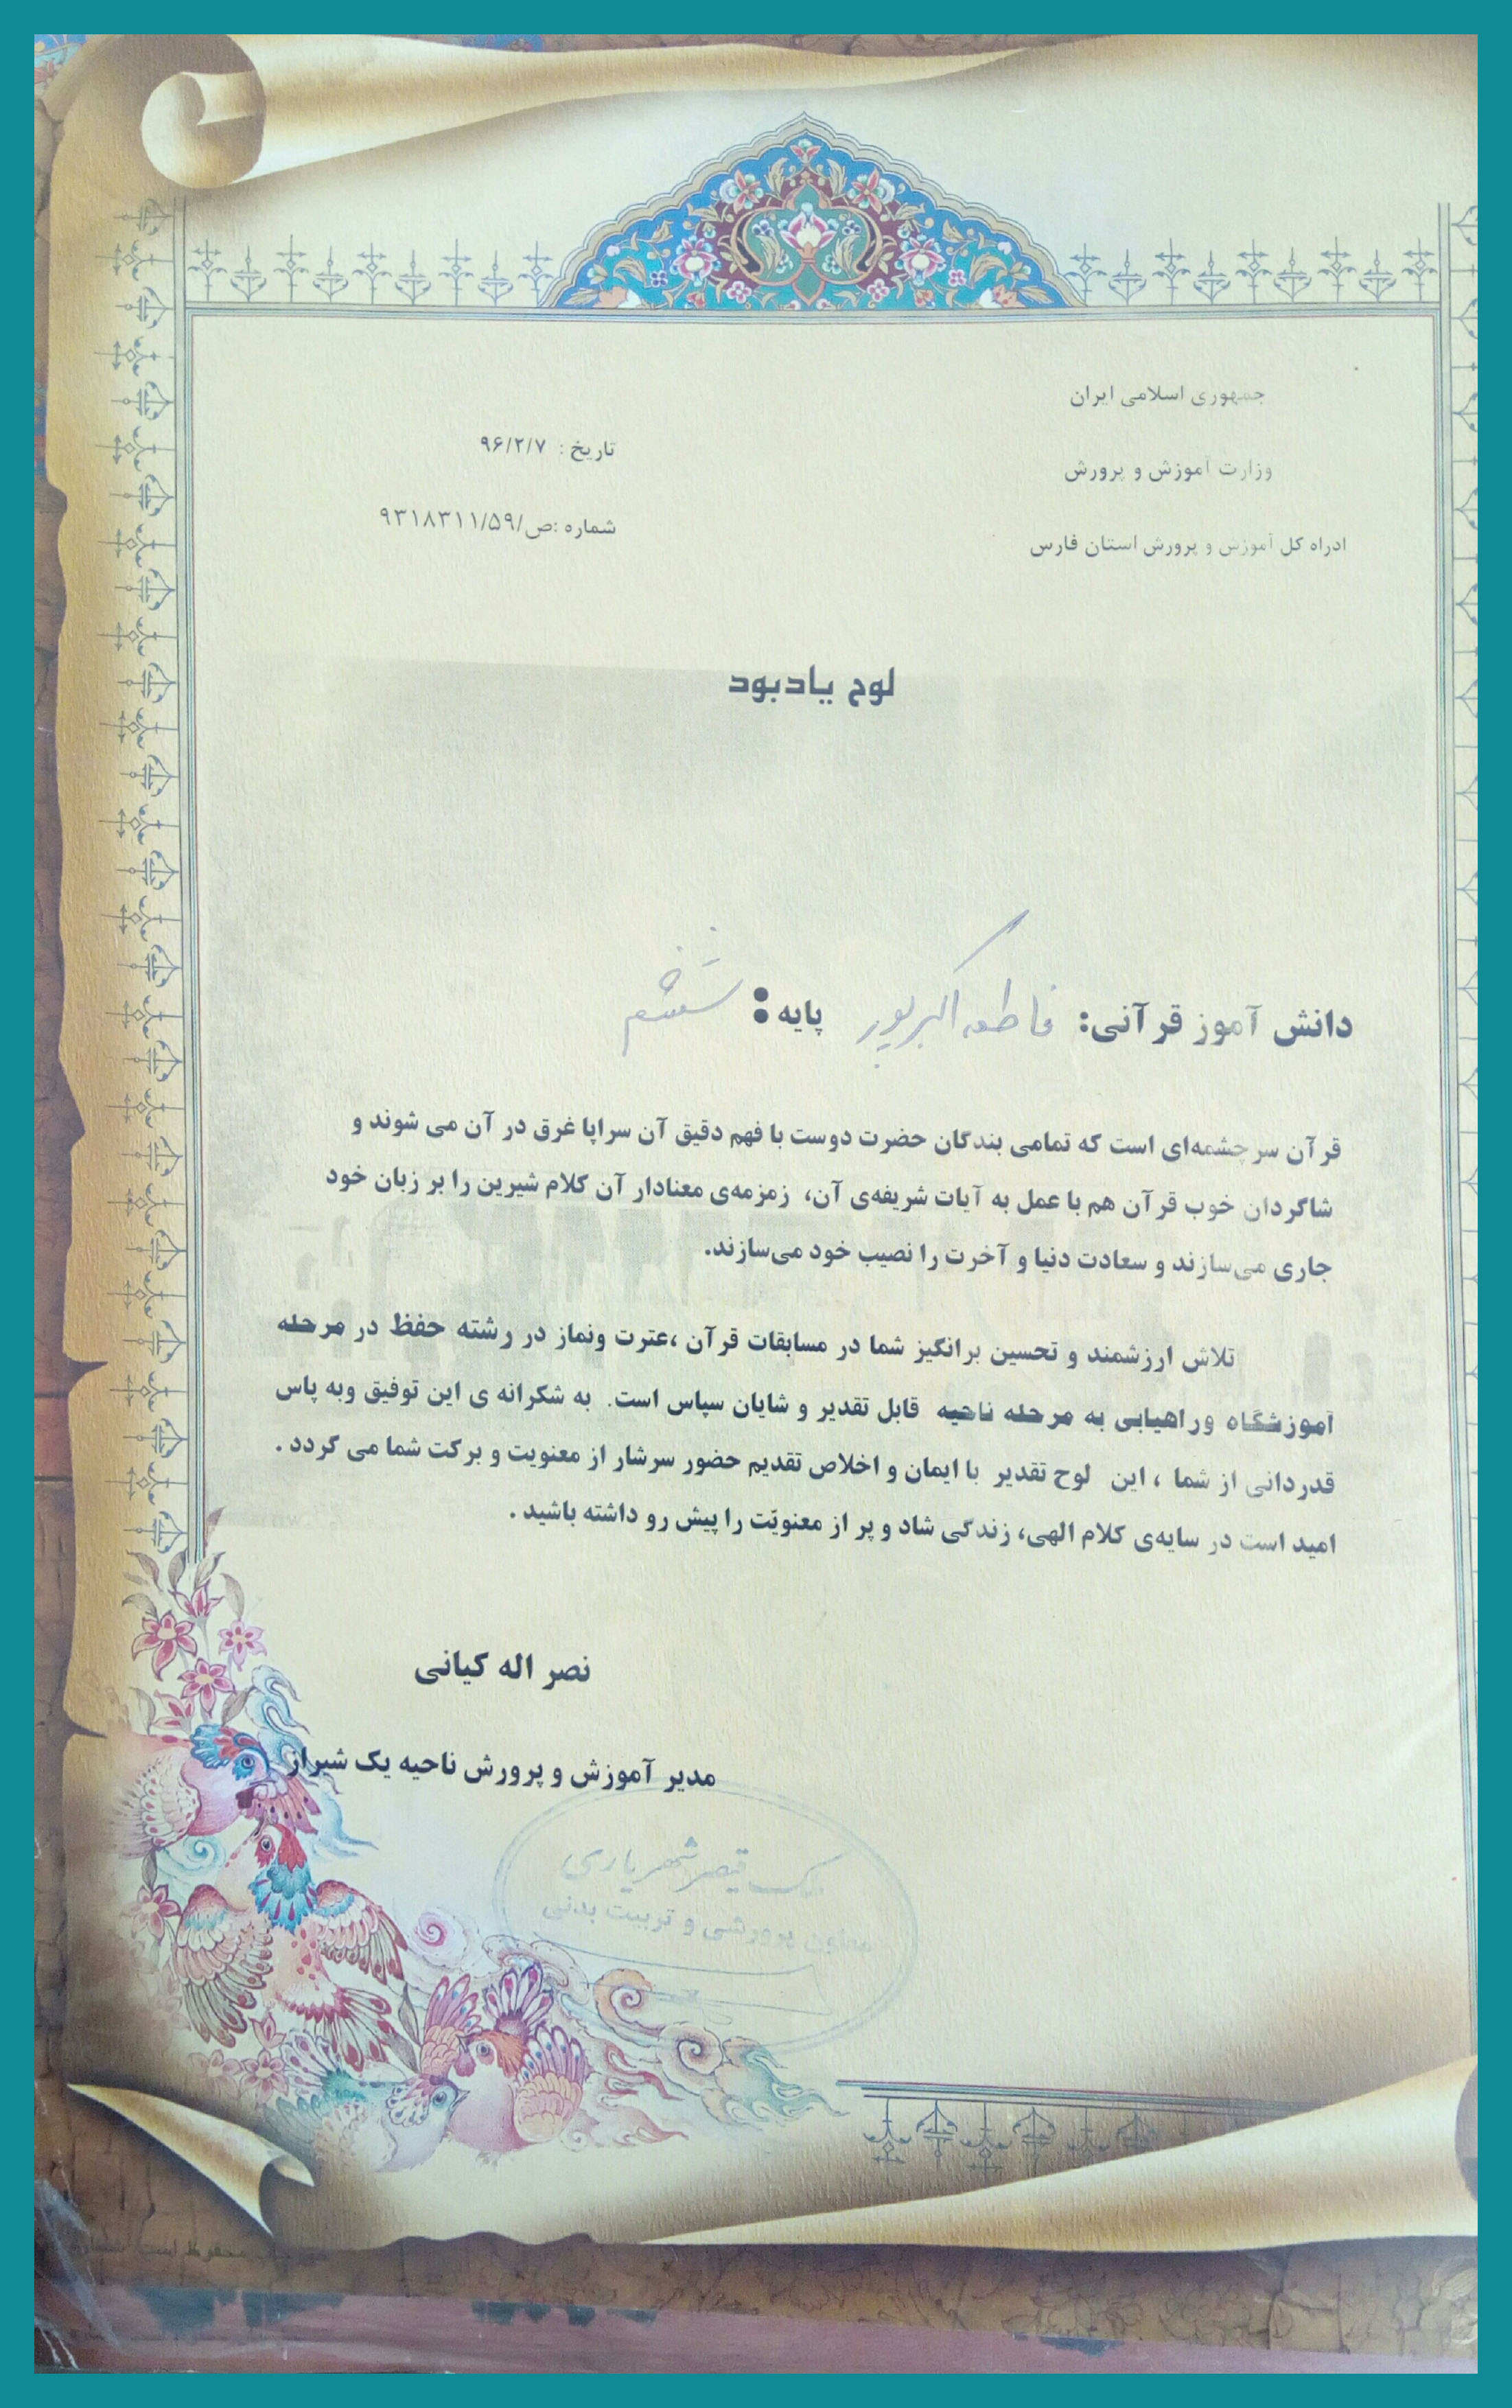 جمهوری اسلامی ایران
وزارت آموزش و پرورش
ادراه کل آموزش و پرورش استان فارس
تاریخ : ۹۶/۲/۷
شماره :ص/۹۳۱۸۳۱۱/۵۹
لوح یادبود
دانش آموز قرآنی: فاطمه اکبرپور پایه: ششم
قرآن سرچشمه‌ای است که تمامی بندگان حضرت دوست با فهم دقیق آن سراپا غرق در آن می شوند و
شاگردان خوب قرآن هم با عمل به آیات شریفه‌ی آن، زمزمه‌ی معنادار آن کلام شیرین را بر زبان خود
جاری می‌سازند و سعادت دنیا و آخرت را نصیب خود می‌سازند.
تلاش ارزشمند و تحسین برانگیز شما در مسابقات قرآن ،عترت ونماز در رشته حفظ در مرحله
آموزشگاه وراهیابی به مرحله ناحیه قابل تقدیر و شایان سپاس است. به شکرانه ی این توفیق وبه پاس
قدردانی از شما ، این لوح تقدیر با ایمان و اخلاص تقدیم حضور سرشار از معنویت و برکت شما می گردد .
امید است در سایه‌ی کلام الهی، زندگی شاد و پر از معنویّت را پیش رو داشته باشید .
نصر اله کیانی
مدیر آموزش و پرورش ناحیه یک شیراز
قیصر شهریاری
معاون پرورشی و تربیت بدنی